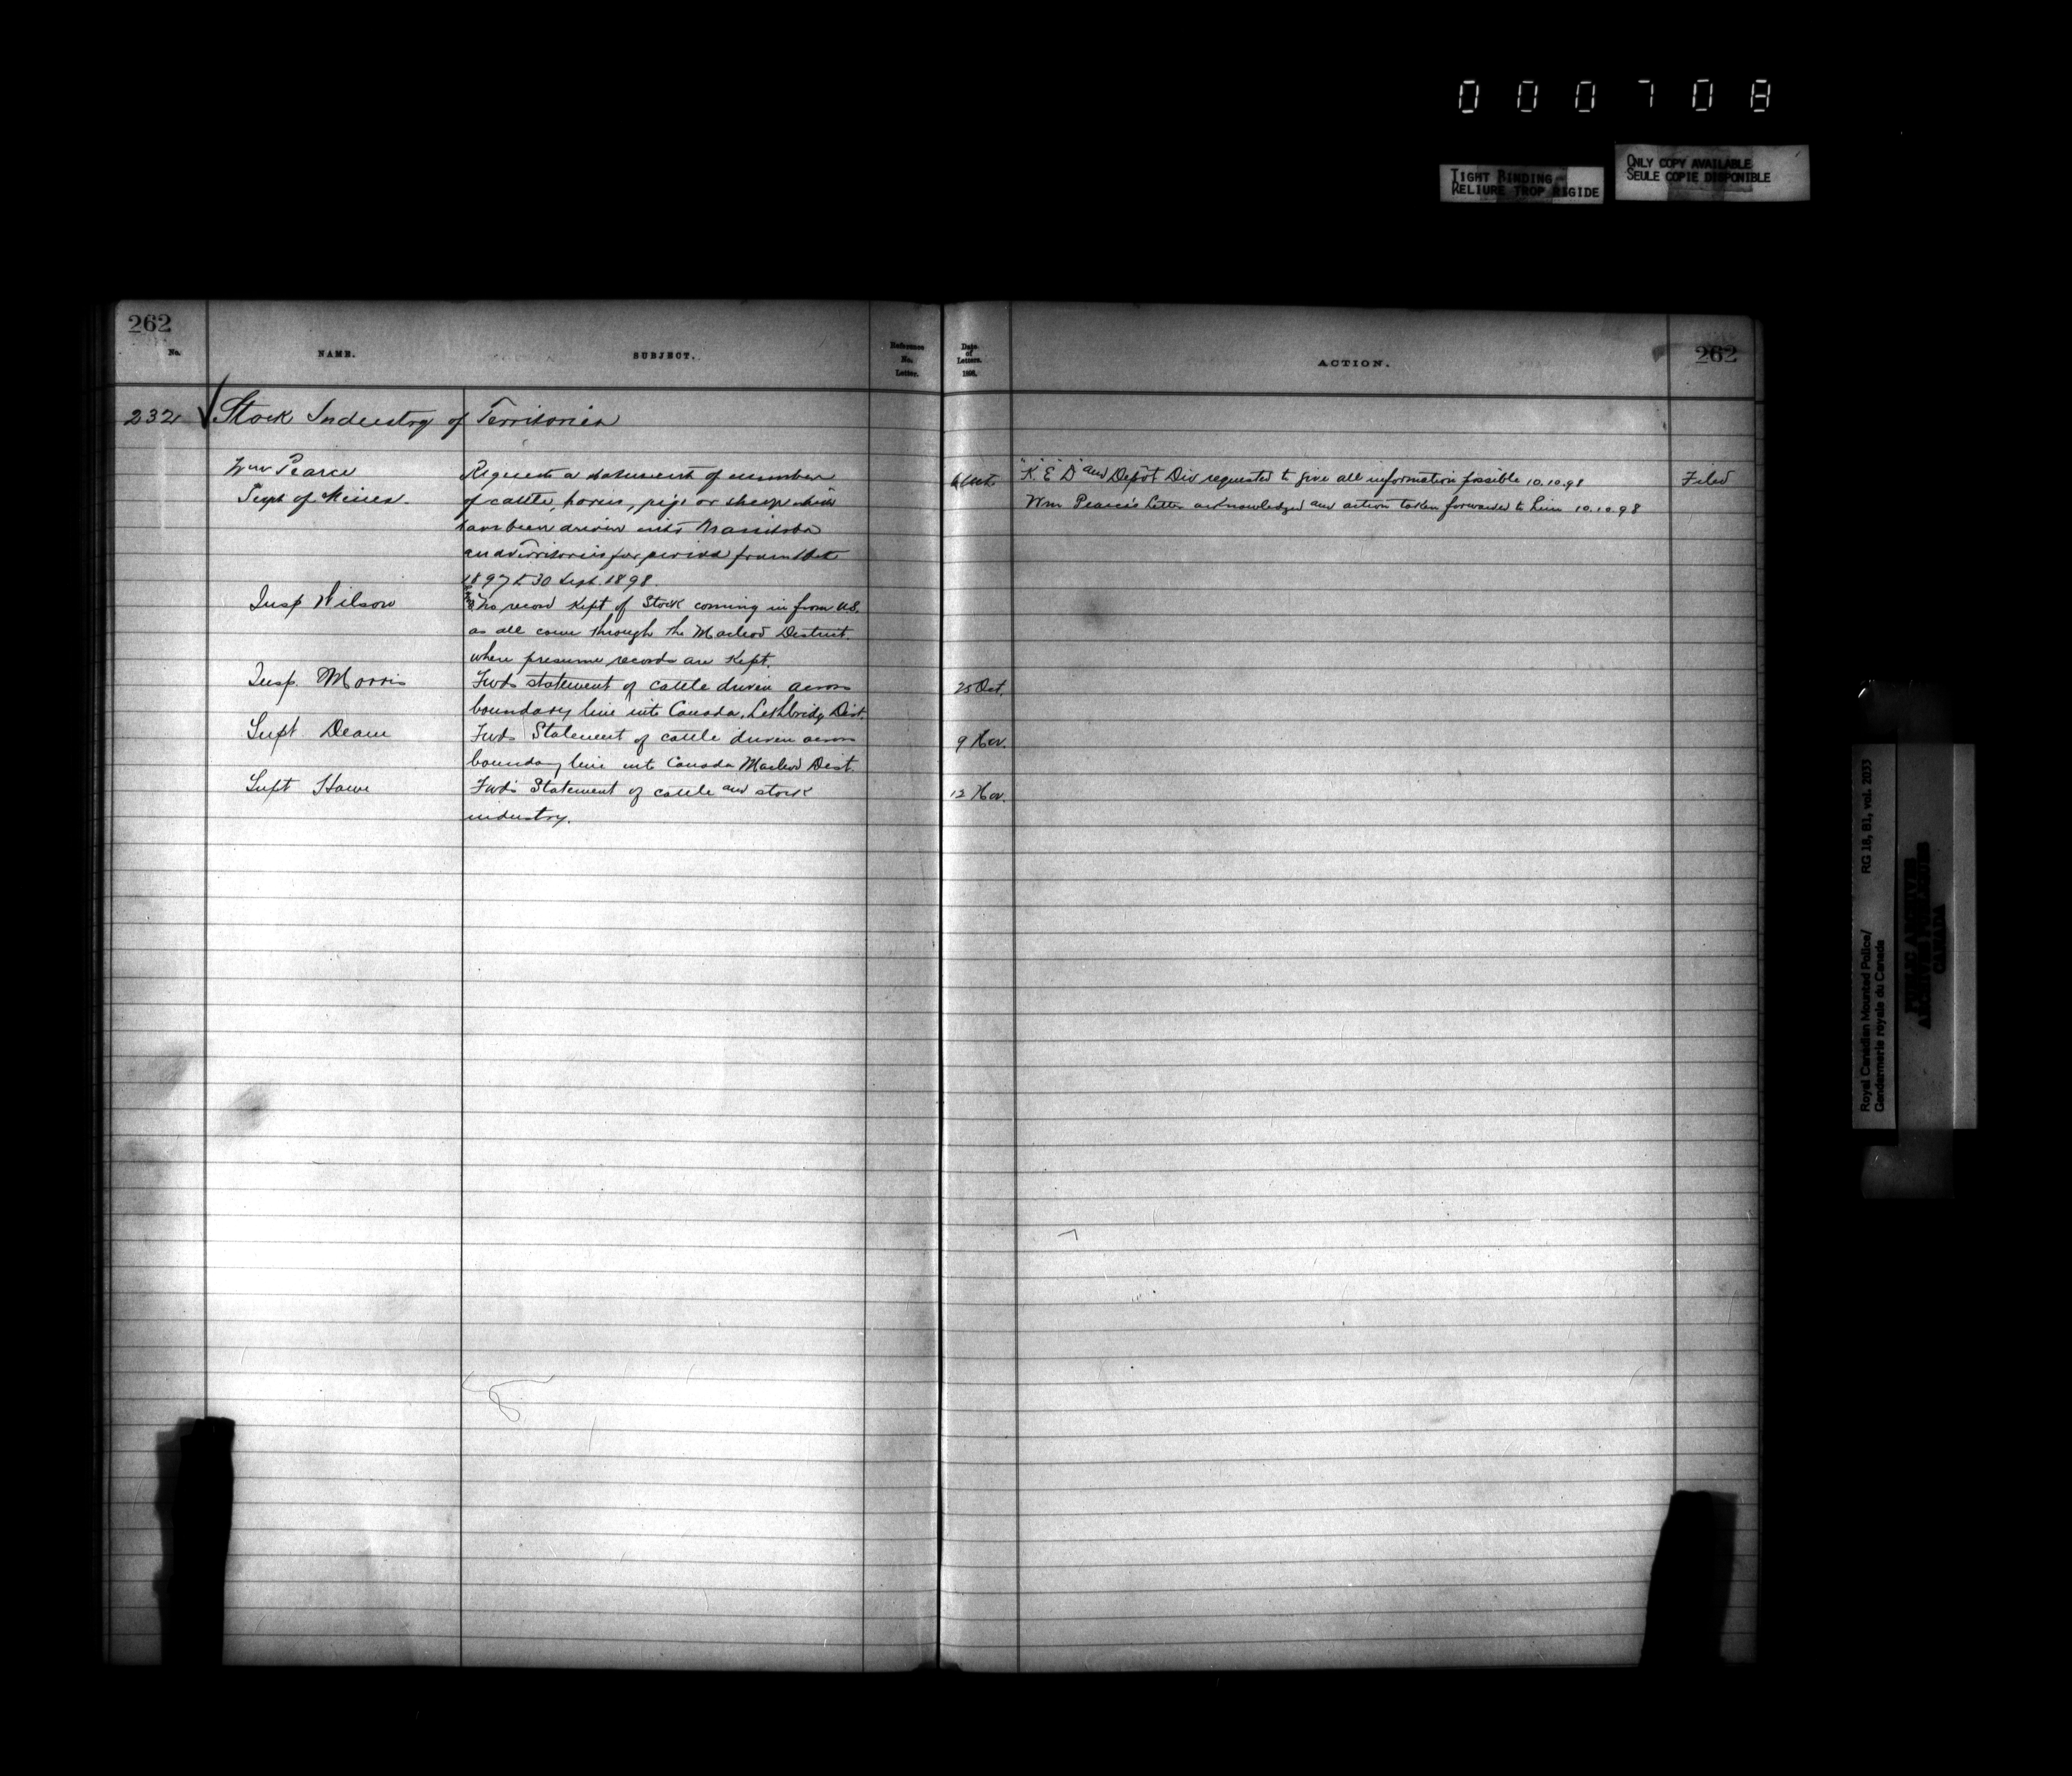 000708
TIGHT BINDING
RELIURE TROP RIGIDE
ONLY COPY AVAILABLE
SEULE COPIE DISPONIBLE
262
No.
NAME.
SUBJECT.
Reference No. Letter.
Date of Letters. 1898.
ACTION.
262
232 Stock Industry of Territories
Wm Pearce
Supt of Mines.
Requests a statement of number
of cattle, horses, pigs or sheep which
have been driven into Manitoba
and Territories for period from 1 Oct
1897 to 30 Sept. 1898.
"K" "E" "D" and Depôt Div requested to give all information possible 10.10.98
Filed
Wm Pearce's Letter acknowledged and action taken forwarded to him 10.10.98
Insp Wilson
No record kept of Stock coming in from U.S.
as all come through the Macleod District.
where presume records are kept.
Insp. Morris
Fwds statement of cattle driven across
25 Oct.
boundary line into Canada, Lethbridge Dist.
Supt Deane
Fwds Statement of cattle driven across
9 Nov.
boundary line into Canada Macleod Dist.
Supt Howe
Fwds Statement of cattle and stock
12 Nov.
industry.
Royal Canadian Mounted Police/
Gendarmerie royale du Canada
RG 18, B1, vol. 2033
PUBLIC ARCHIVES
ARCHIVES PUBLIQUES
CANADA